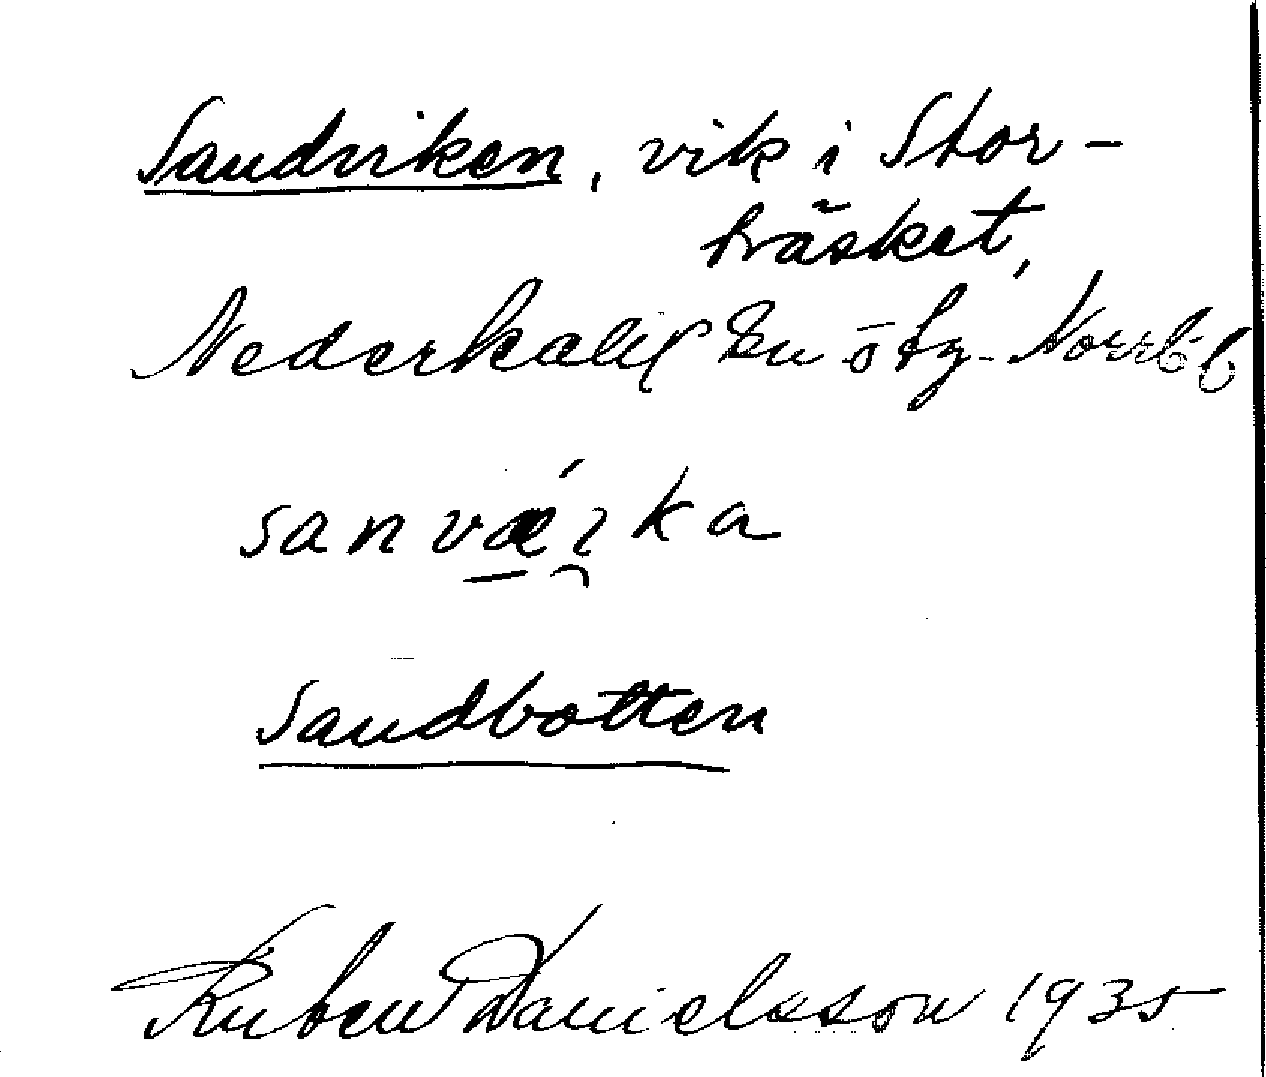 Sandviken, vik i Stor-
träsket,
Nederkalix sn ö tg. Norrb. l
Sandbotten
Ruben Danielsson 1935